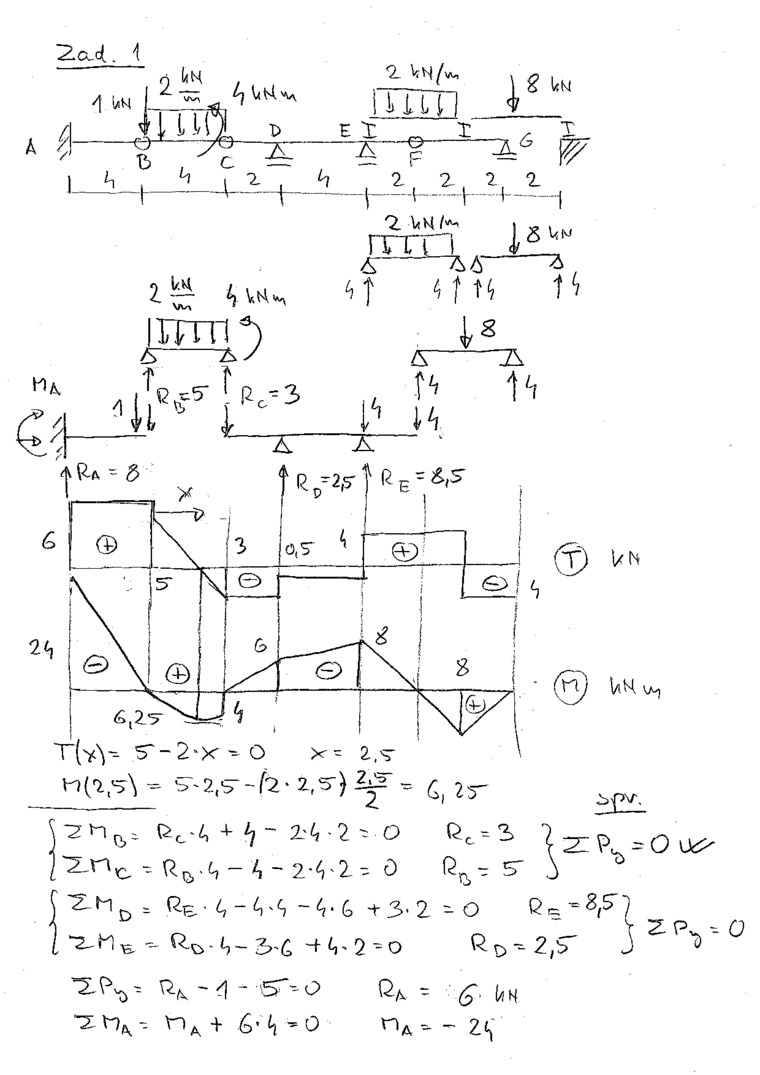 Zad. 1
1 kN 2 kN/m 4 kNm 2 kN/m 8 kN
A B C D E I F I G I
4 4 2 4 2 2 2 2
2 kN/m 8 kN
4 4 4 4
2 kN/m 4 kNm
8
M_A 1 R_B=5 R_C=3 4 4 4 4
R_A = 8 R_D=2,5 R_E=8,5
x
6 + 5 3 - 0,5 4 + - 4 T kN
24 - + 6,25 4 6 - 8 8 + M kNm
T(x) = 5 - 2·x = 0 x = 2,5
M(2,5) = 5·2,5 - (2·2,5) 2,5/2 = 6,25
spr.
ΣM_B = R_C·4 + 4 - 2·4·2 = 0 R_C = 3
ΣM_C = R_B·4 - 4 - 2·4·2 = 0 R_B = 5
ΣP_y = 0 ✓
ΣM_D = R_E·4 - 4·4 - 4·6 + 3·2 = 0 R_E = 8,5
ΣM_E = R_D·4 - 3·6 + 4·2 = 0 R_D = 2,5
ΣP_y = 0
ΣP_y = R_A - 1 - 5 = 0 R_A = 6 kN
ΣM_A = M_A + 6·4 = 0 M_A = - 24